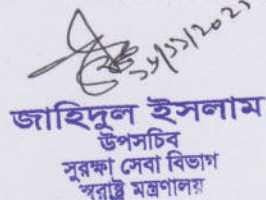 জাহিদুল ইসলাম
উপসচিব
সুরক্ষা সেবা বিভাগ
স্বরাষ্ট্র মন্ত্রণালয়